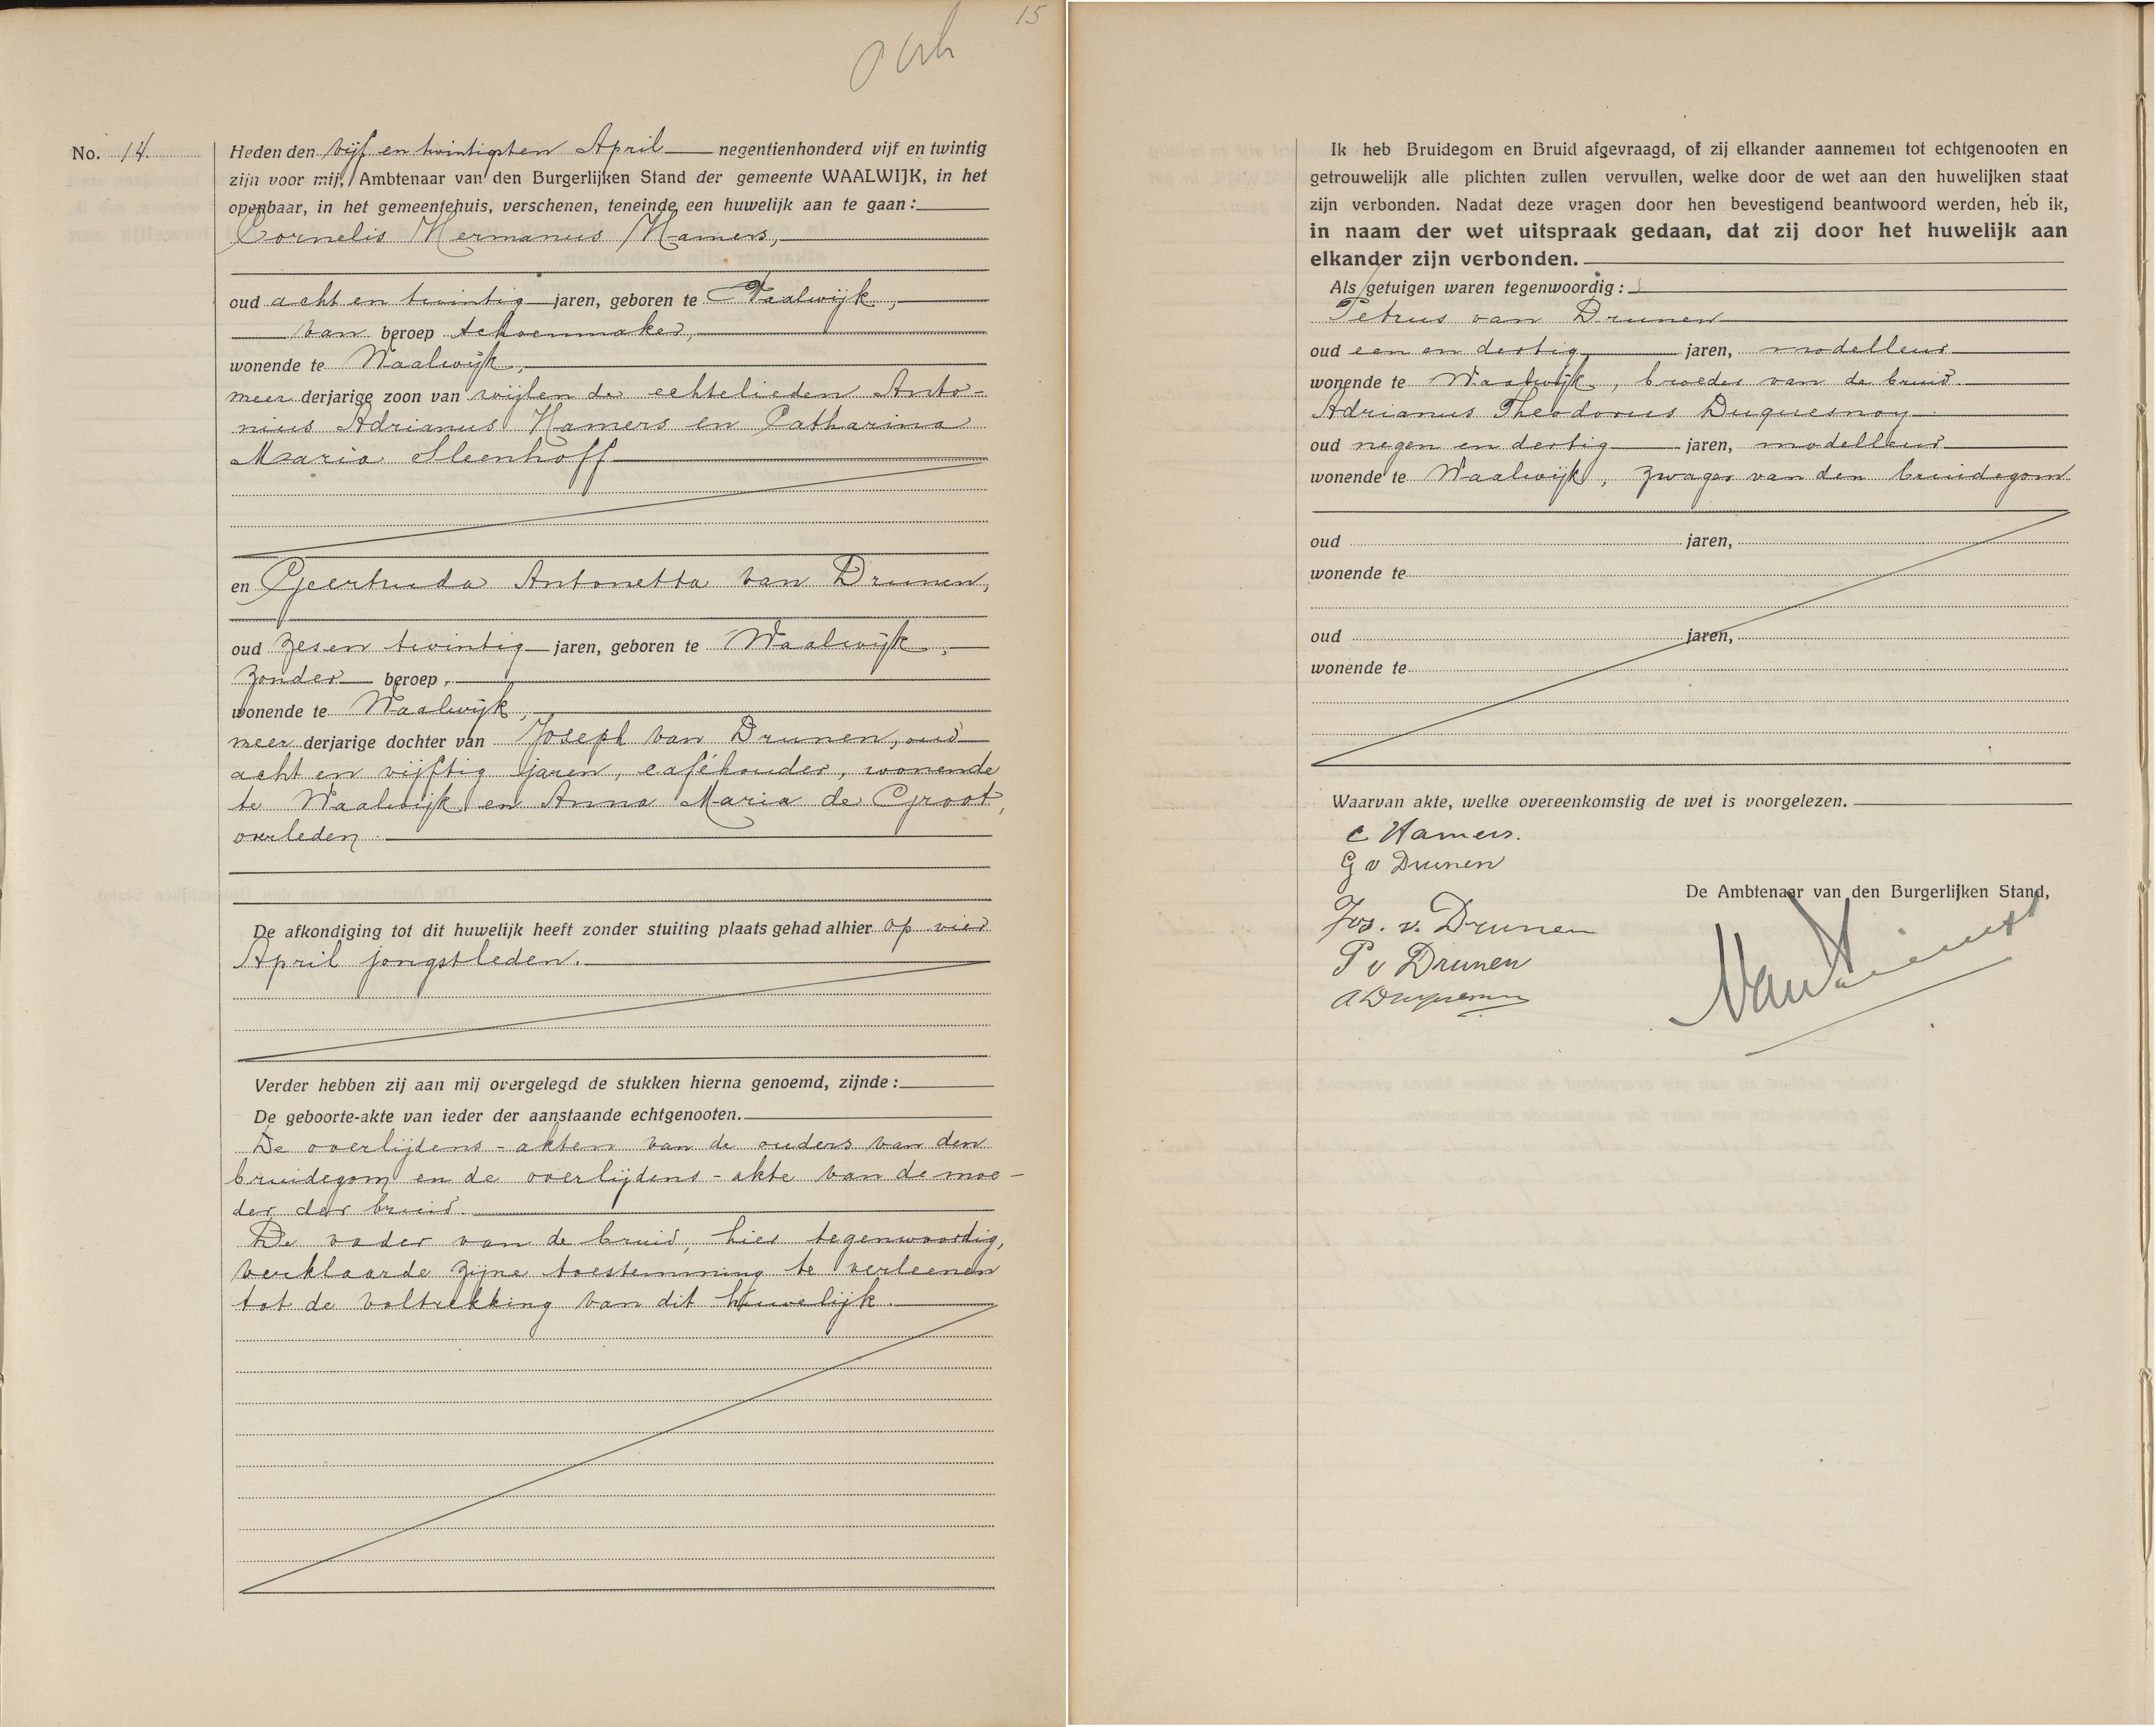 15
No. 14.
Heden den vijf en twintigsten April negentienhonderd vijf en twintig
zijn voor mij, Ambtenaar van den Burgerlijken Stand der gemeente WAALWIJK, in het
openbaar, in het gemeentehuis, verschenen, teneinde een huwelijk aan te gaan:
Cornelis Hermanus Hamers,
oud acht en twintig jaren, geboren te Waalwijk,
van beroep schoenmaker,
wonende te Waalwijk,
meer derjarige zoon van wijlen de echtelieden Anto-
nius Adrianus Hamers en Catharina
Maria Sleenhoff
en Geertruda Antonetta van Drunen,
oud zes en twintig jaren, geboren te Waalwijk,
zonder beroep,
wonende te Waalwijk,
meer derjarige dochter van Joseph van Drunen, oud
acht en vijftig jaren, caféhouder, wonende
te Waalwijk en Anna Maria de Groot,
overleden.
De afkondiging tot dit huwelijk heeft zonder stuiting plaats gehad alhier op vier
April jongstleden.
Verder hebben zij aan mij overgelegd de stukken hierna genoemd, zijnde:
De geboorte-akte van ieder der aanstaande echtgenooten.
De overlijdens-akten van de ouders van den
bruidegom en de overlijdens-akte van de moe-
der der bruid.
De vader van de bruid, hier tegenwoordig,
verklaarde zijne toestemming te verleenen
tot de voltrekking van dit huwelijk.
Ik heb Bruidegom en Bruid afgevraagd, of zij elkander aannemen tot echtgenooten en
getrouwelijk alle plichten zullen vervullen, welke door de wet aan den huwelijken staat
zijn verbonden. Nadat deze vragen door hen bevestigend beantwoord werden, heb ik,
in naam der wet uitspraak gedaan, dat zij door het huwelijk aan
elkander zijn verbonden.
Als getuigen waren tegenwoordig:
Petrus van Drunen
oud een en dertig jaren, modelleur
wonende te Waalwijk, broeder van de bruid.
Adrianus Theodorus Duquesnoy
oud negen en dertig jaren, modelleur
wonende te Waalwijk, zwager van den bruidegom
oud jaren,
wonende te
oud jaren,
wonende te
Waarvan akte, welke overeenkomstig de wet is voorgelezen.
C Hamers.
G v Drunen
De Ambtenaar van den Burgerlijken Stand,
Jos. v. Drunen
P v Drunen
A Duquesnoy